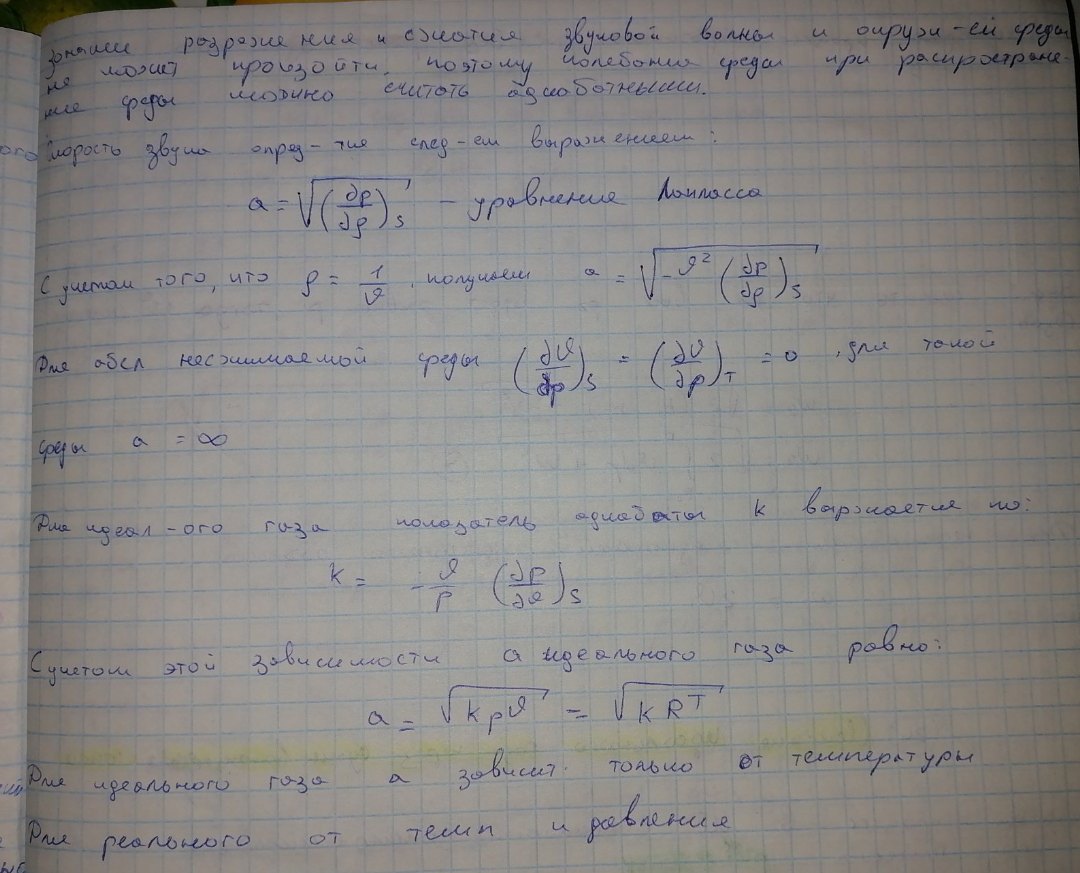 разрежения и сжатия звуковой волны и окруж-ей среды
не может произойти, поэтому колебания среды при распростране-
нии среды можно считать адиабатными.
Скорость звука опред-тся след-ем выражением:
a = √(∂p/∂ρ)s – уравнение Лапласса
С учетом того, что ρ = 1/ϑ, получаем a = √-ϑ² (∂p/∂ρ)s
Для абсл несжимаемой среды (∂ϑ/∂p)s = (∂ϑ/∂p)T = 0, для такой
среды a = ∞
Для идеал-ого газа показатель адиабаты k выржается по:
k = - ϑ/p (∂p/∂ϑ)s
С учетом этой зависимости a идеального газа равно:
a = √kpϑ = √kRT
Для идеального газа a зависит только от температуры
Для реального от темп и давления